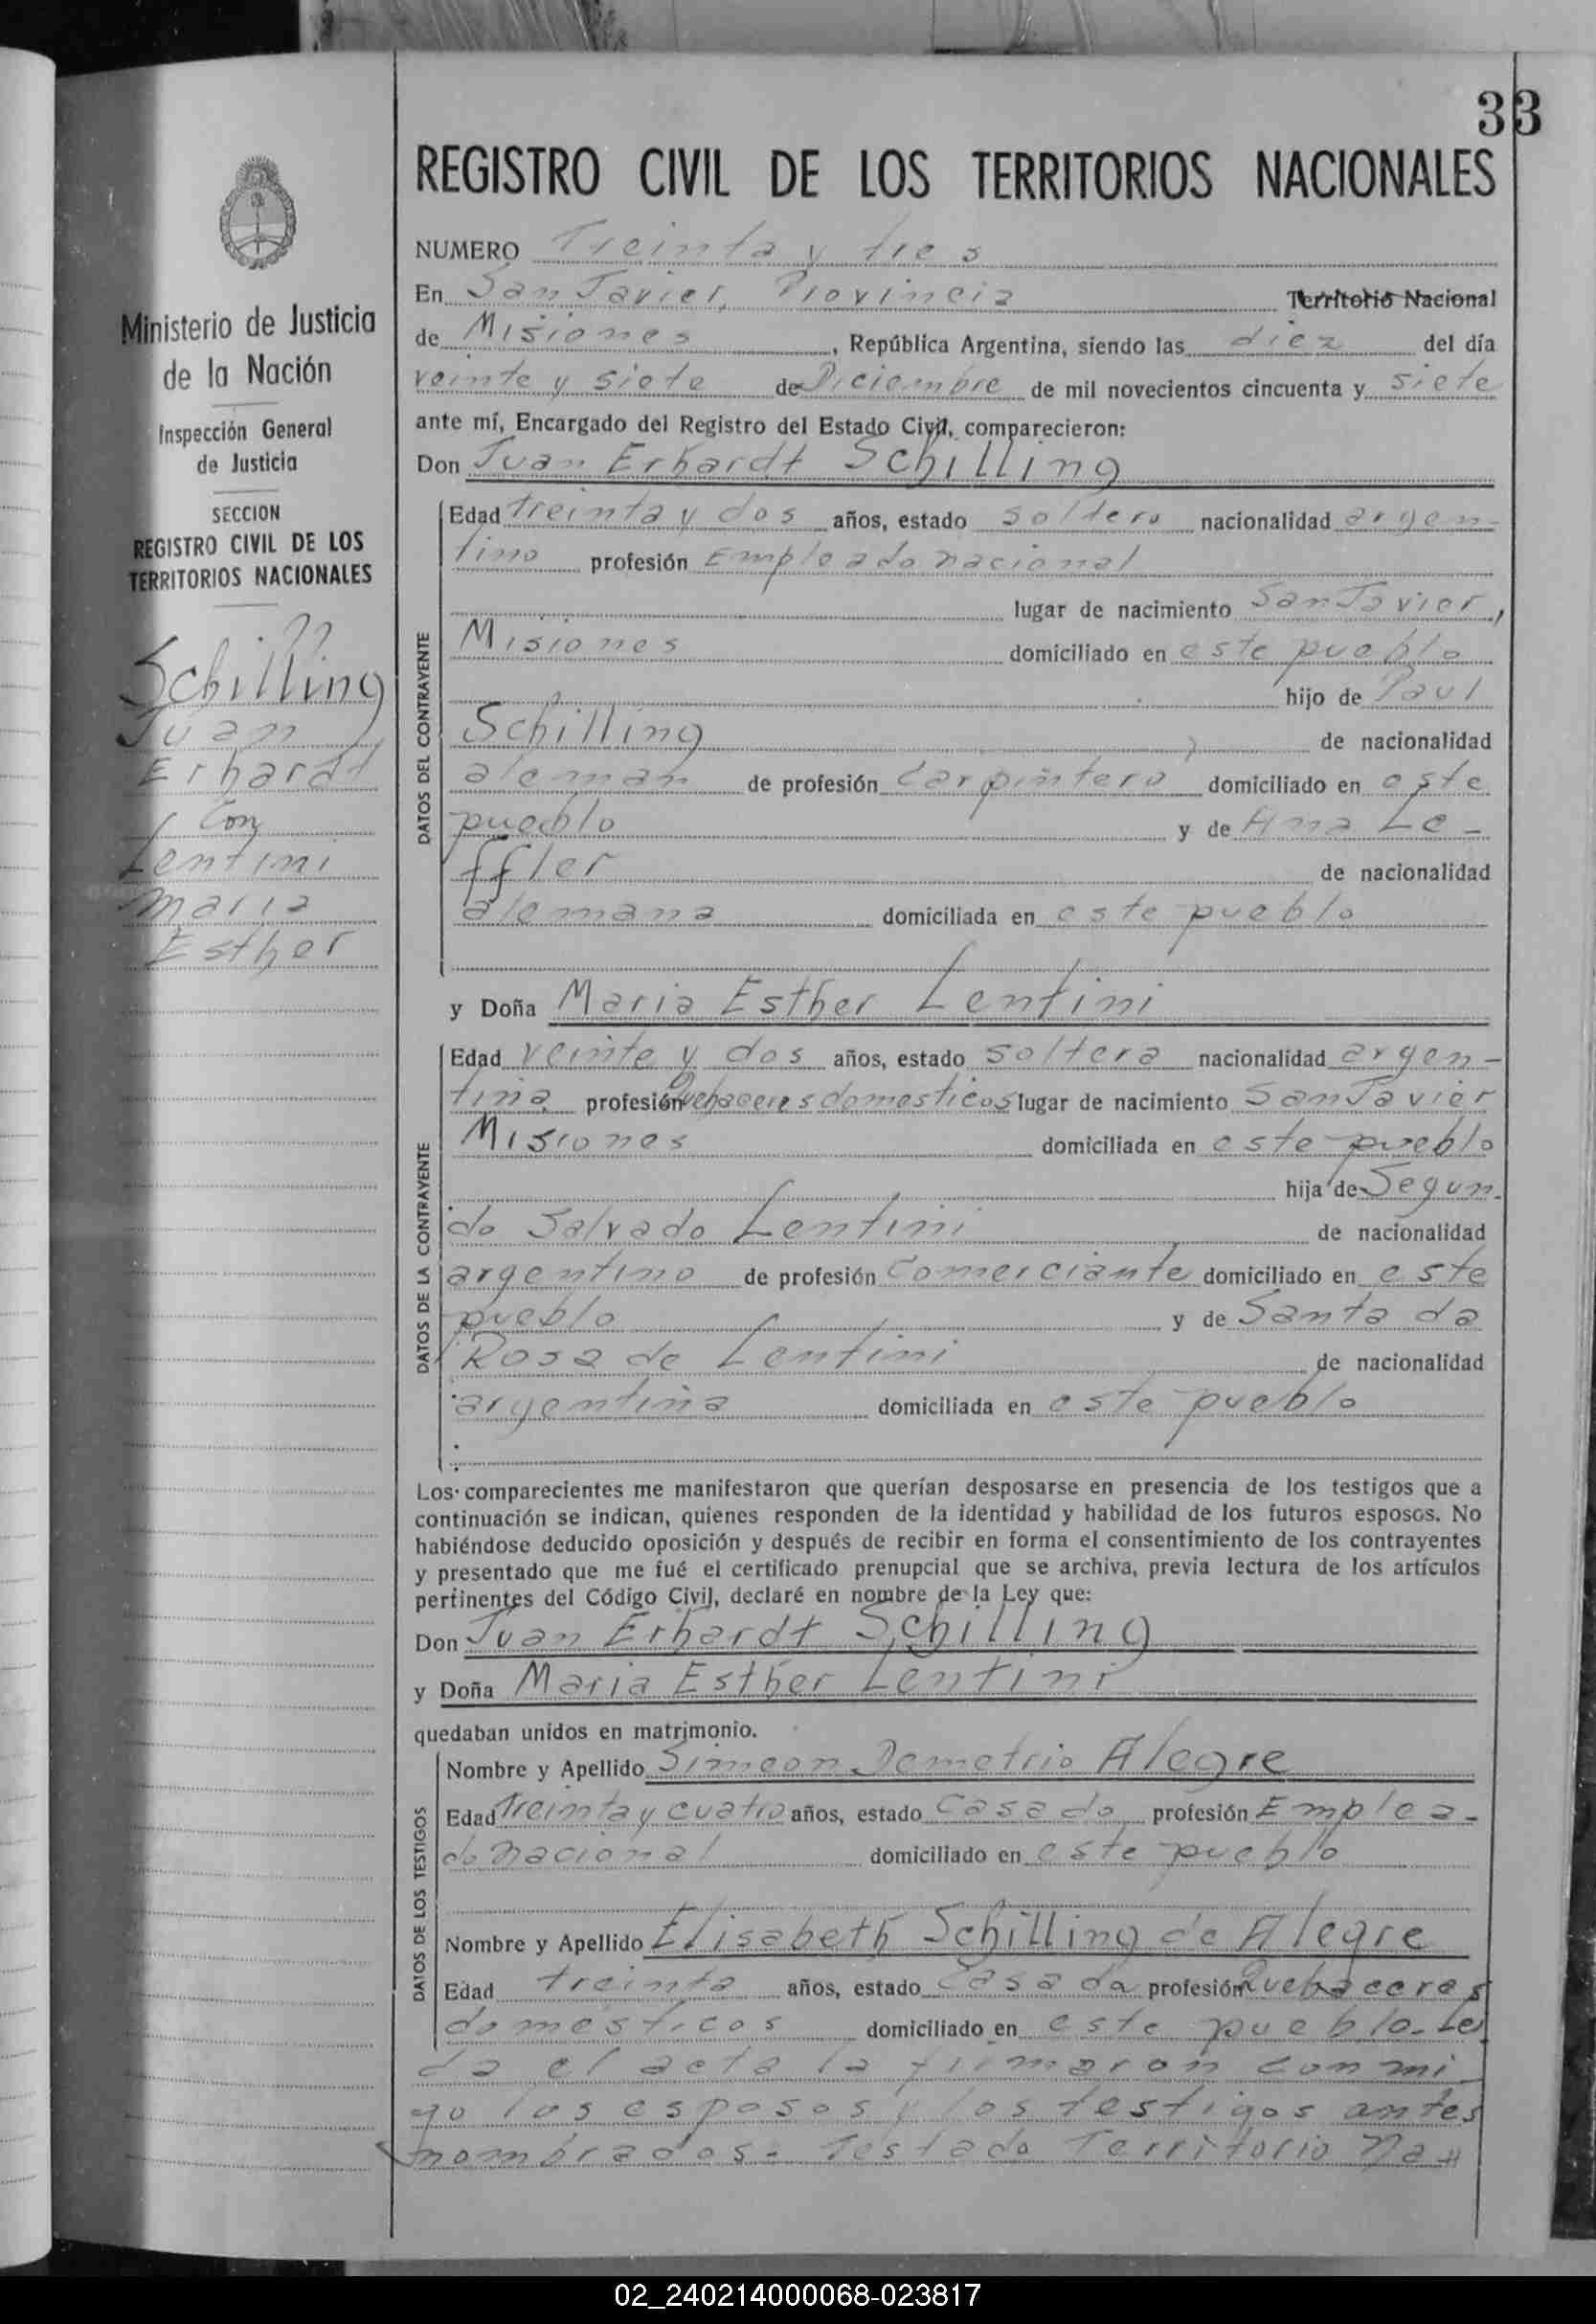 33
REGISTRO CIVIL DE LOS TERRITORIOS NACIONALES
NUMERO Treinta y tres
En San Javier, Provincia Territorio Nacional
de Misiones, República Argentina, siendo las diez del día
veinte y siete de Diciembre de mil novecientos cincuenta y siete
ante mí, Encargado del Registro del Estado Civil, comparecieron:
Don Juan Erhardt Schilling
Edad treinta y dos años, estado soltero nacionalidad argen-
tino profesión Empleado nacional
lugar de nacimiento San Javier,
Misiones domiciliado en este pueblo
hijo de Paul
Schilling, de nacionalidad
alemán de profesión Carpintero domiciliado en este
pueblo y de Ana Le-
ffler de nacionalidad
alemana domiciliada en este pueblo
DATOS DEL CONTRAYENTE
y Doña Maria Esther Lentini
Edad veinte y dos años, estado soltera nacionalidad argen-
tina profesión Quehaceres domesticos lugar de nacimiento San Javier
Misiones domiciliada en este pueblo
hija de Segun-
do Salvado Lentini de nacionalidad
argentino de profesión Comerciante domiciliado en este
pueblo y de Santa da
Rosa de Lentini de nacionalidad
argentina domiciliada en este pueblo
DATOS DE LA CONTRAYENTE
Los comparecientes me manifestaron que querían desposarse en presencia de los testigos que a
continuación se indican, quienes responden de la identidad y habilidad de los futuros esposos. No
habiéndose deducido oposición y después de recibir en forma el consentimiento de los contrayentes
y presentado que me fué el certificado prenupcial que se archiva, previa lectura de los artículos
pertinentes del Código Civil, declaré en nombre de la Ley que:
Don Juan Erhardt Schilling
y Doña Maria Esther Lentini
quedaban unidos en matrimonio.
Nombre y Apellido Simeon Demetrio Alegre
Edad Treinta y cuatro años, estado Casado profesión Emplea-
do nacional domiciliado en este pueblo
Nombre y Apellido Elisabeth Schilling de Alegre
Edad treinta años, estado Casada profesión Quehaceres
domésticos domiciliado en este pueblo. Lei
da el acta la firmaron conmi
go los esposos y los testigos antes
nombrados.- Testado Territorio Na=
DATOS DE LOS TESTIGOS
Ministerio de Justicia
de la Nación
Inspección General
de Justicia
SECCION
REGISTRO CIVIL DE LOS
TERRITORIOS NACIONALES
Schilling
Juan
Erhardt
Con
Lentini
Maria
Esther
02_240214000068-023817